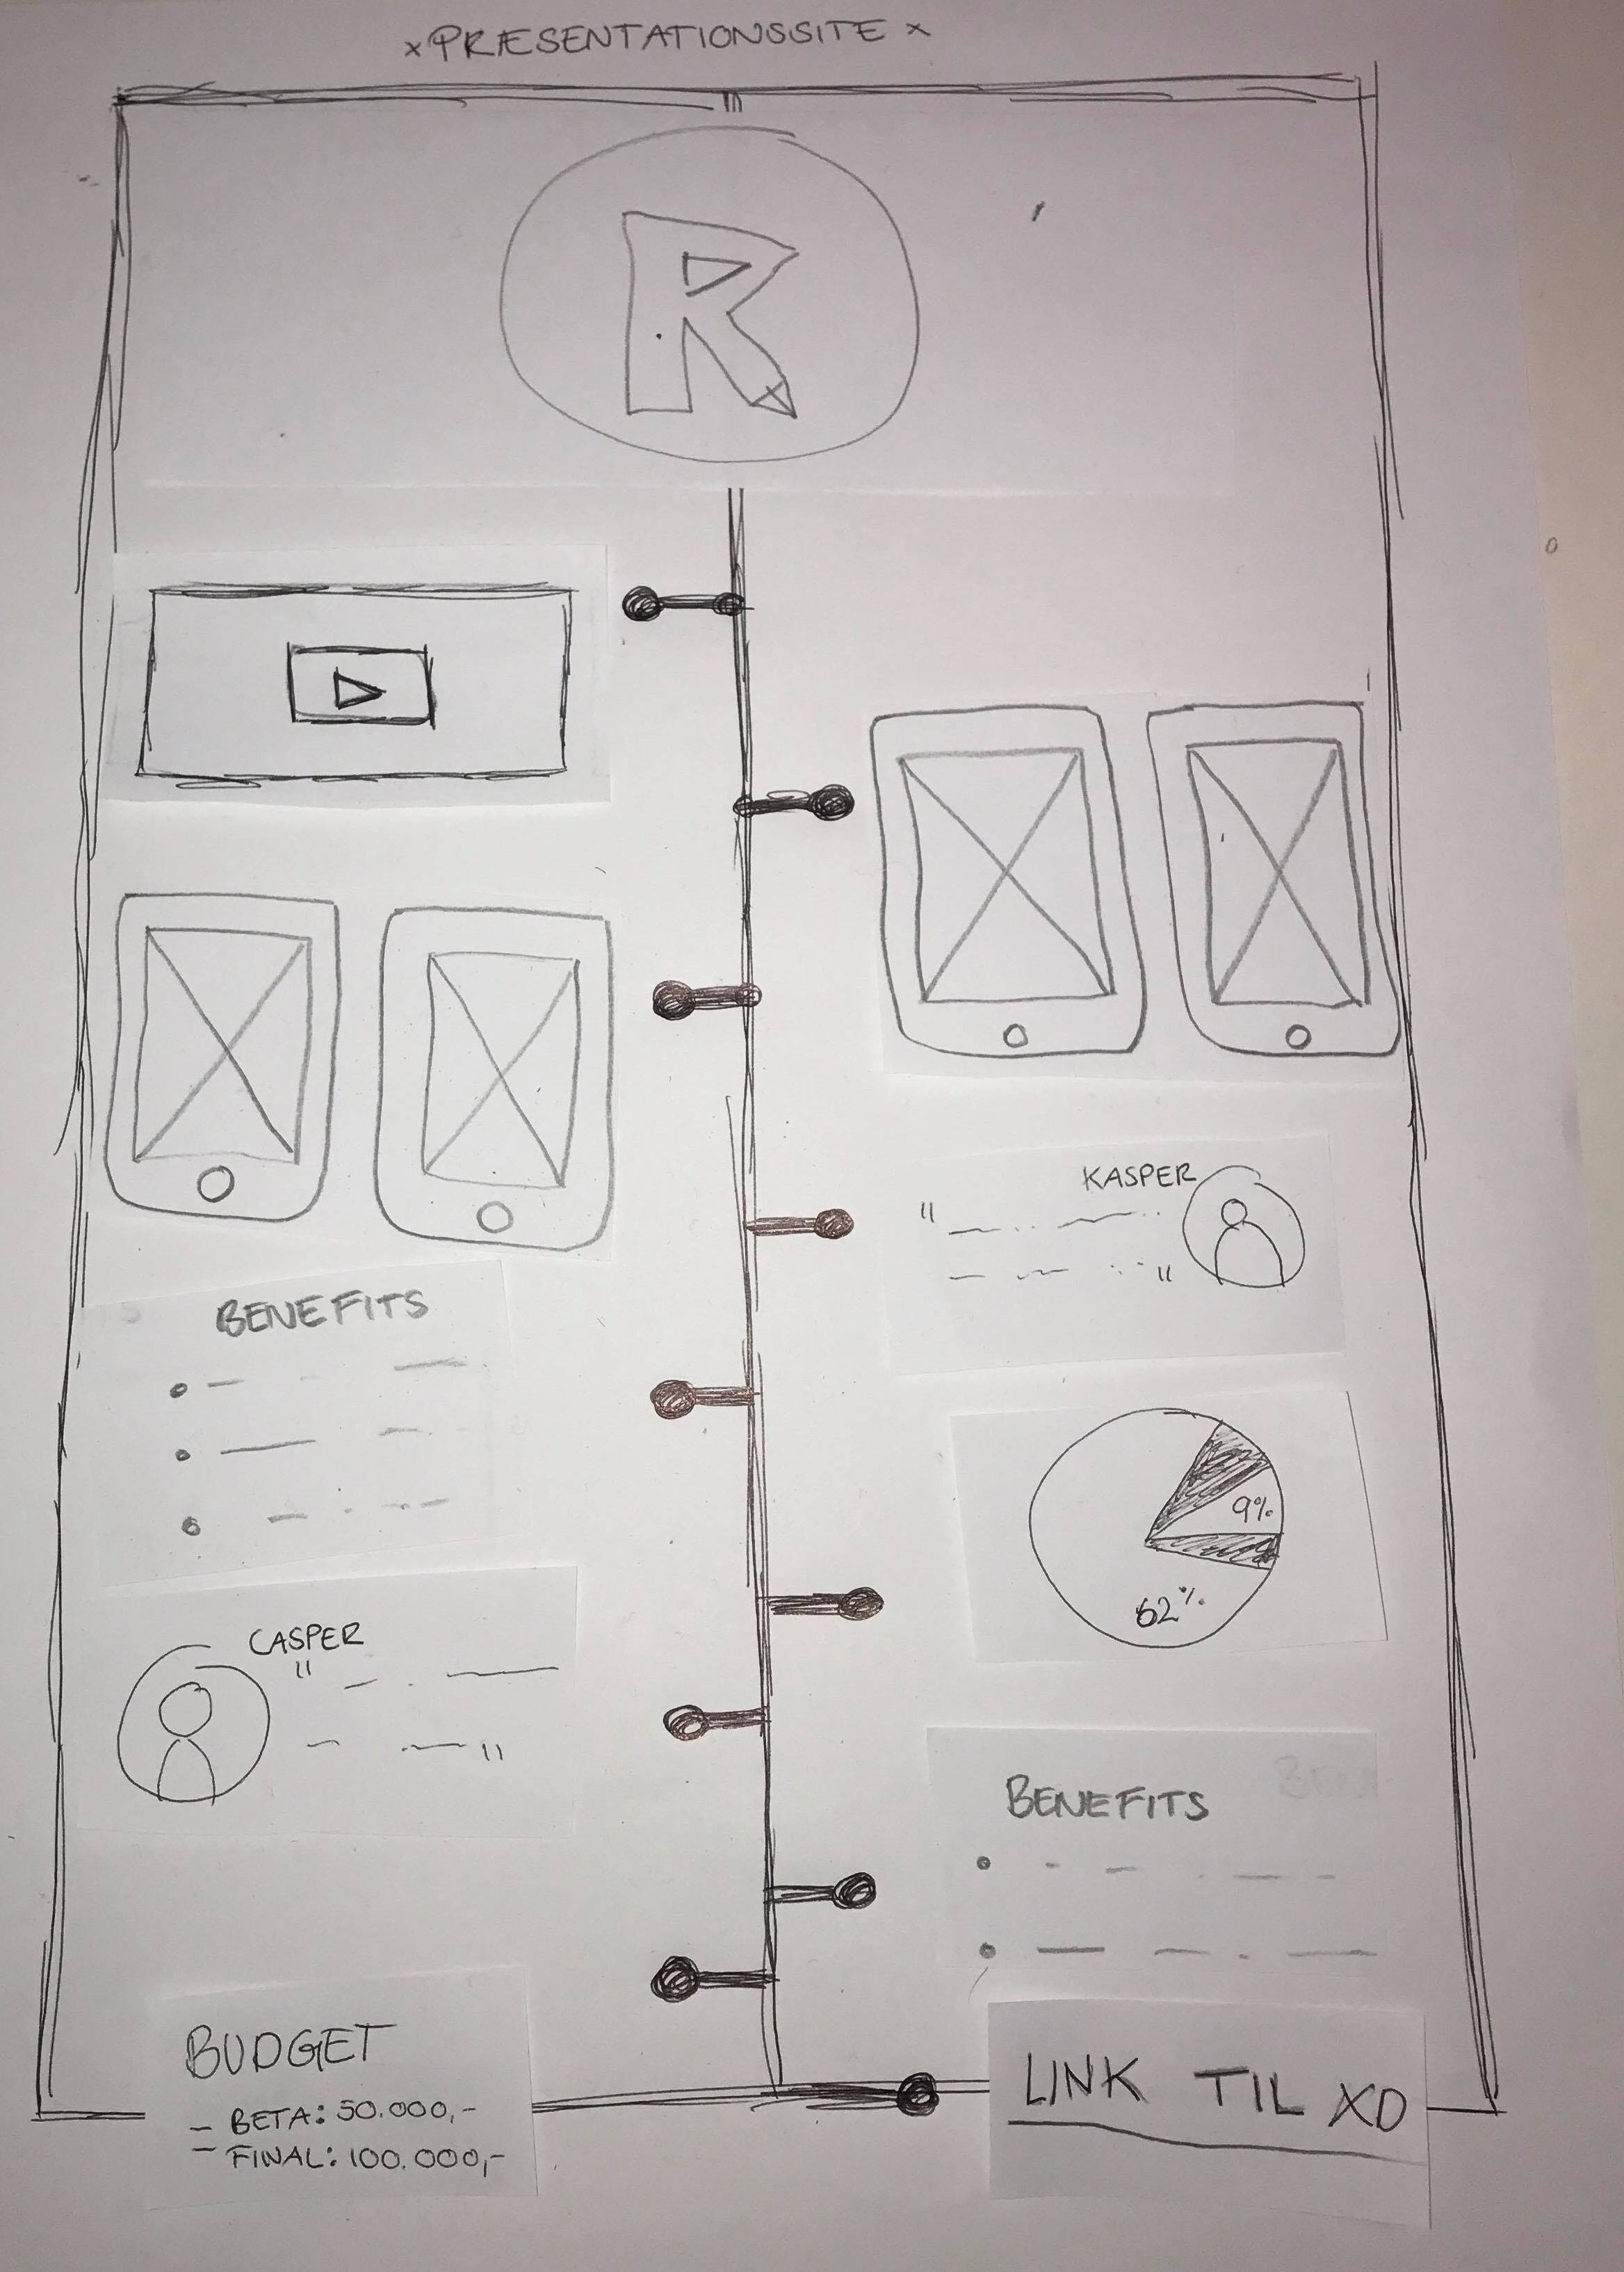 x PRÆSENTATIONSSITE x
R
KASPER
BENEFITS
9%
62%
CASPER
BENEFITS
BUDGET
- BETA: 50.000,-
- FINAL: 100.000,-
LINK TIL XD